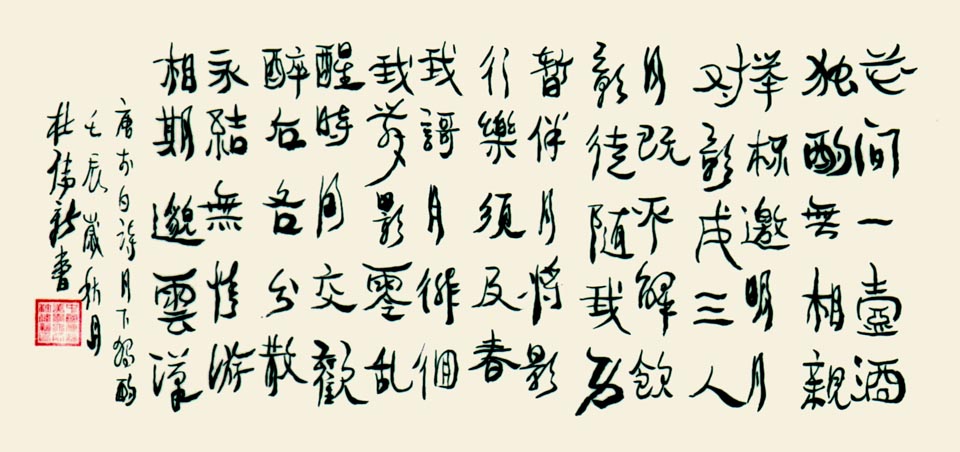 花间一壺酒
独酌無相親
举杯邀明月
对影成三人
月既不解飲
影徒随我身
暫伴月将影
行樂須及春
我謌月徘徊
我舞影零乱
醒時同交歡
醉后各分散
永結無情游
相期邈雲漢
唐李白詩月下獨酌
壬辰歲秋月
杜偉新書